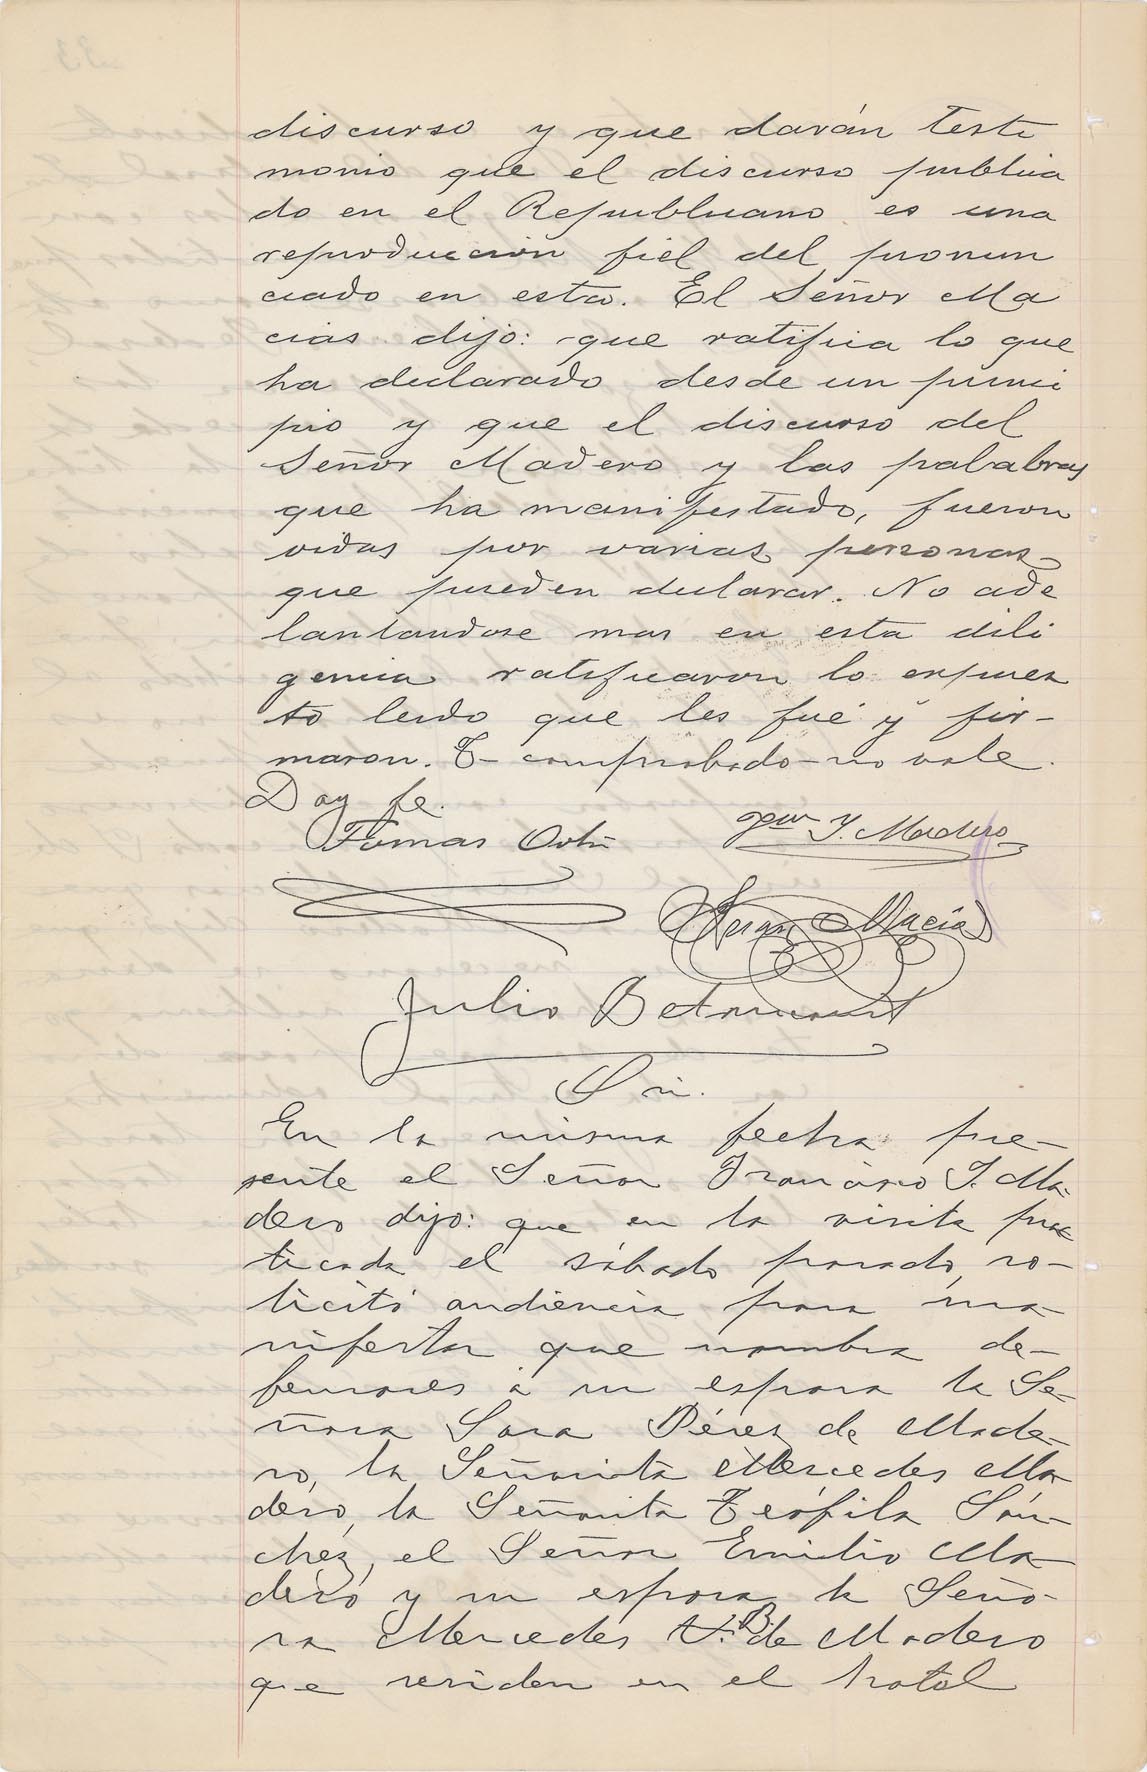 discurso y que darán testi
monio que el discurso publica
do en el Republicano es una
reproduccion fiel del pronun
ciado en esta. El Señor Ma
cias dijo: que ratifica lo que
ha declarado desde un princi
pio y que el discurso del
Señor Madero y las palabras
que ha manifestado, fueron
oidas por varias personas
que pueden declarar. No ade
lantandose mas en esta dili
gencia ratificaron lo expues
to leido que les fué y fir-
maron. T- comprobado- no vale.
Doy fe.
Tomas Ortiz
Y. Madero
Juan Macías
Julio Betancourt
Sri.
En la misma fecha pre-
sente el Señor Francisco I. Ma-
dero dijo: que en la visita prac
ticada el sábado pasado, so-
licitó audiencia para ma-
nifestar que nombra de-
fensores á su esposa la Se-
ñora Sara Pérez de Made-
ro, la Señorita Mercedes Ma-
dero, la Señorita Teófila Sán-
chez, el Señor Emilio Ma-
dero y su esposa la Seño-
ra Mercedes V. B. de Madero
que residen en el hotel